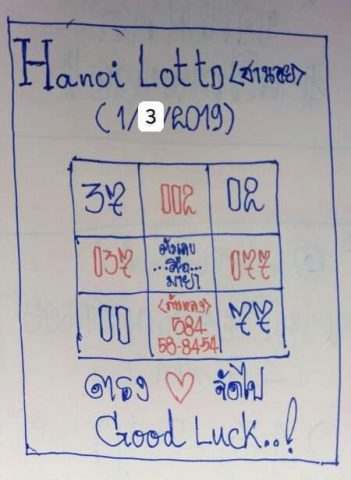 Hanoi Lotto <ฮานอย>
(1/3/2019)
37 002 02
037 ตัวเลข 077
...คือ...
มายา
00 <ตัวหลอก> 77
584
58-84-54
ตรง ♡ จัดไป
Good Luck..!